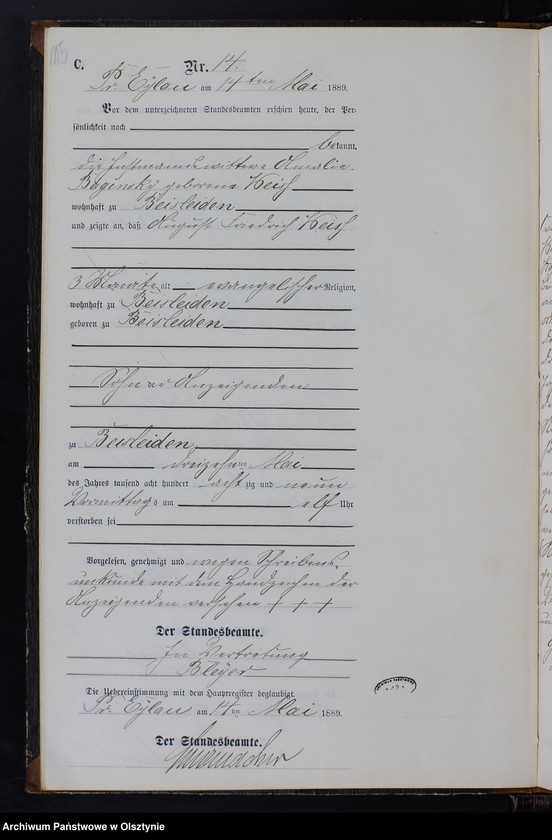 C.
Nr. 14.
Pr. Eylau am 14ten Mai 1889.
Vor dem unterzeichneten Standesbeamten erschien heute, der Per-
sönlichkeit nach
bekannt,
die Instmannswittwe Amalie
Baginsky geborene
wohnhaft zu Beisleiden
und zeigte an, daß August Friedrich
3 Monate alt evangelischer Religion,
wohnhaft zu Beisleiden
geboren zu Beisleiden
Sohn der Anzeigenden
zu Beisleiden
am dreizehnten Mai
des Jahres tausend acht hundert achtzig und neun
Vormittags um elf Uhr
verstorben sei
Vorgelesen, genehmigt und wegen Schreibens-
unkunde mit dem Handzeichen der
Anzeigenden versehen + + +
Der Standesbeamte.
In Vertretung
Bleyer
Die Uebereinstimmung mit dem Hauptregister beglaubigt.
Pr. Eylau am 14ten Mai 1889.
Der Standesbeamte.
Archiwum Państwowe w Olsztynie